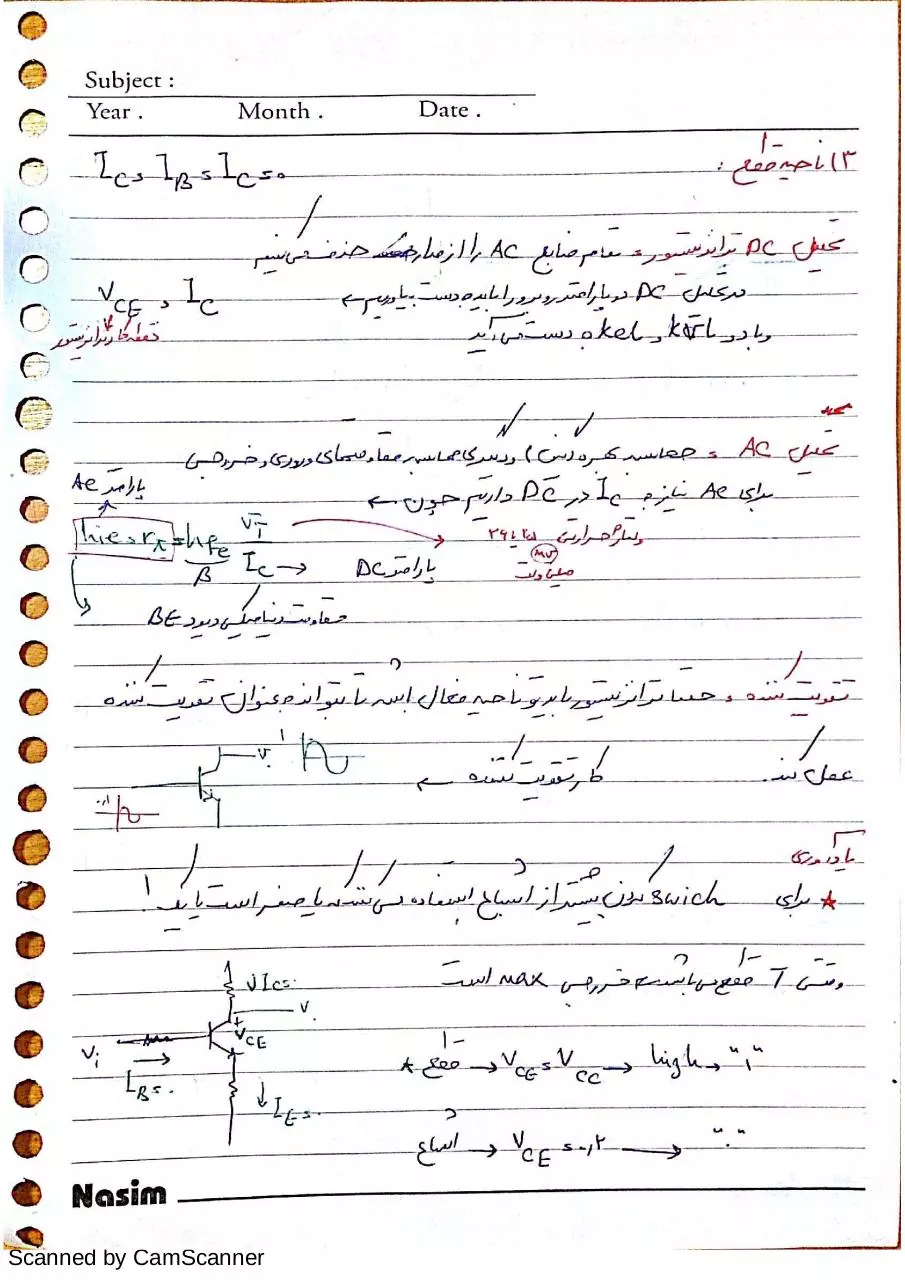 Subject :
Year . Month . Date .
۳) ناحیه قطع :
I_C = I_B = I_C = ۰
تحلیل DC ترانزیستور = تمام منابع AC را از مدار حذف می کنیم
در تحلیل DC دو پارامتر را باید بدست بیاوریم ←
V_CE , I_C
نقطه کار ترانزیستور
و با دو تا kvl و kcl بدست می آید
تحلیل AC = محاسبه بهره (گین) و دیگری محاسبه مقاومتهای ورودی و خروجی
برای AC نیاز به I_C در DC داریم چون ←
پارامتر AC
hie = rπ = hfe V_T / I_C → پارامتر DC
β
ولتاژ حرارتی ۲۵ یا ۲۶
mV
میلی ولت
مقاومت دینامیکی دیود BE
تقویت کننده = حتما ترانزیستور باید تو ناحیه فعال باشه تا بتواند بعنوان تقویت کننده
عمل کند.
کار تقویت کننده ←
V.
یادآوری
★ برای swich بودن بیشتر از اشباع استفاده می شه یا صفر است یا یک !
وقتی T قطع می باشد خروجی max است
V.
V_CE
V_i
I_B = ۰
I_E = ۰
★ قطع → V_CE = V_CC → high → "۱"
اشباع → V_CE = ۰,۲ → "۰"
Nasim
Scanned by CamScanner